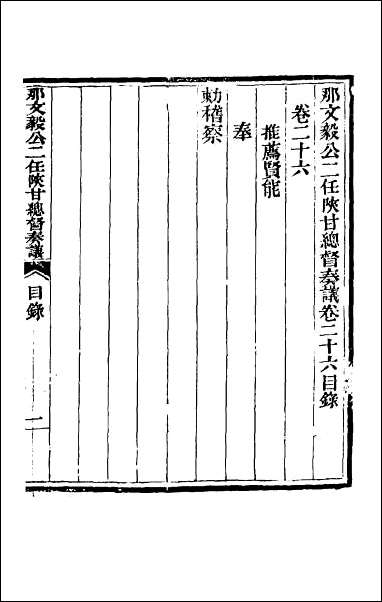 那文毅公二任陝甘總督奏議卷二十六目錄
卷二十六
推薦賢能
奉
勅稽察
那文毅公二任陝甘總督奏議
目錄
一